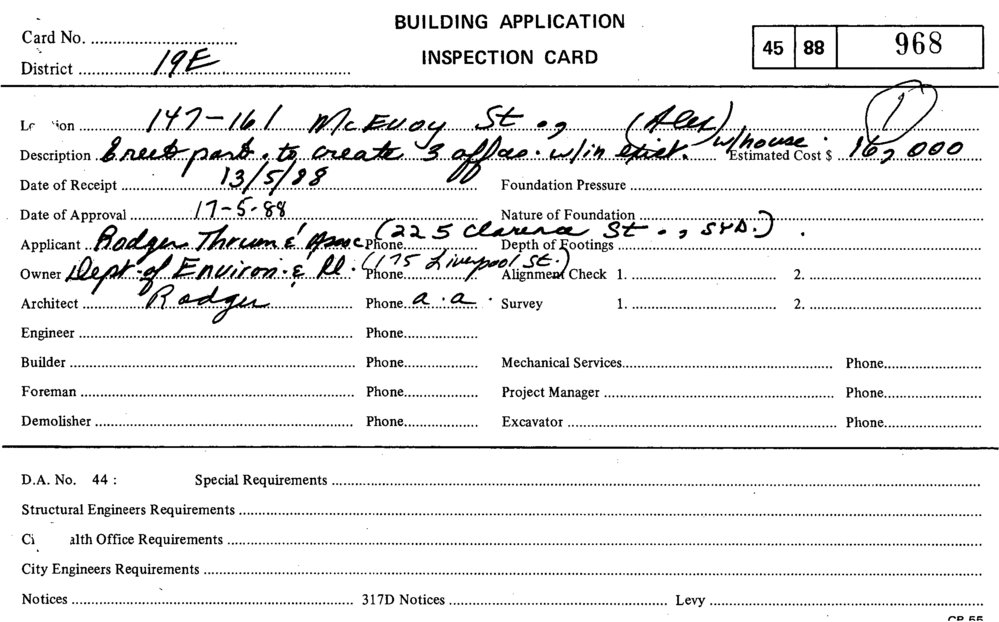 BUILDING APPLICATION
Card No.
INSPECTION CARD
45 88 968
District 19E
Location 147-161 McEvoy St., (Alex)
Description Erect part. to create 3 offices. w/in exist. w/house. Estimated Cost $ 16,000
Date of Receipt 13/5/88 Foundation Pressure
Date of Approval 17-5-88 Nature of Foundation
Applicant Rodger & Assoc Phone (225 Clarence St., SYD.) Depth of Footings
Owner Dept. of Environ. & Pl. Phone (175 Liverpool St.) Alignment Check 1. 2.
Architect Rodger Phone a.a. Survey 1. 2.
Engineer Phone
Builder Phone Mechanical Services Phone
Foreman Phone Project Manager Phone
Demolisher Phone Excavator Phone
D.A. No. 44 : Special Requirements
Structural Engineers Requirements
Ci alth Office Requirements
City Engineers Requirements
Notices 317D Notices Levy
CP 55